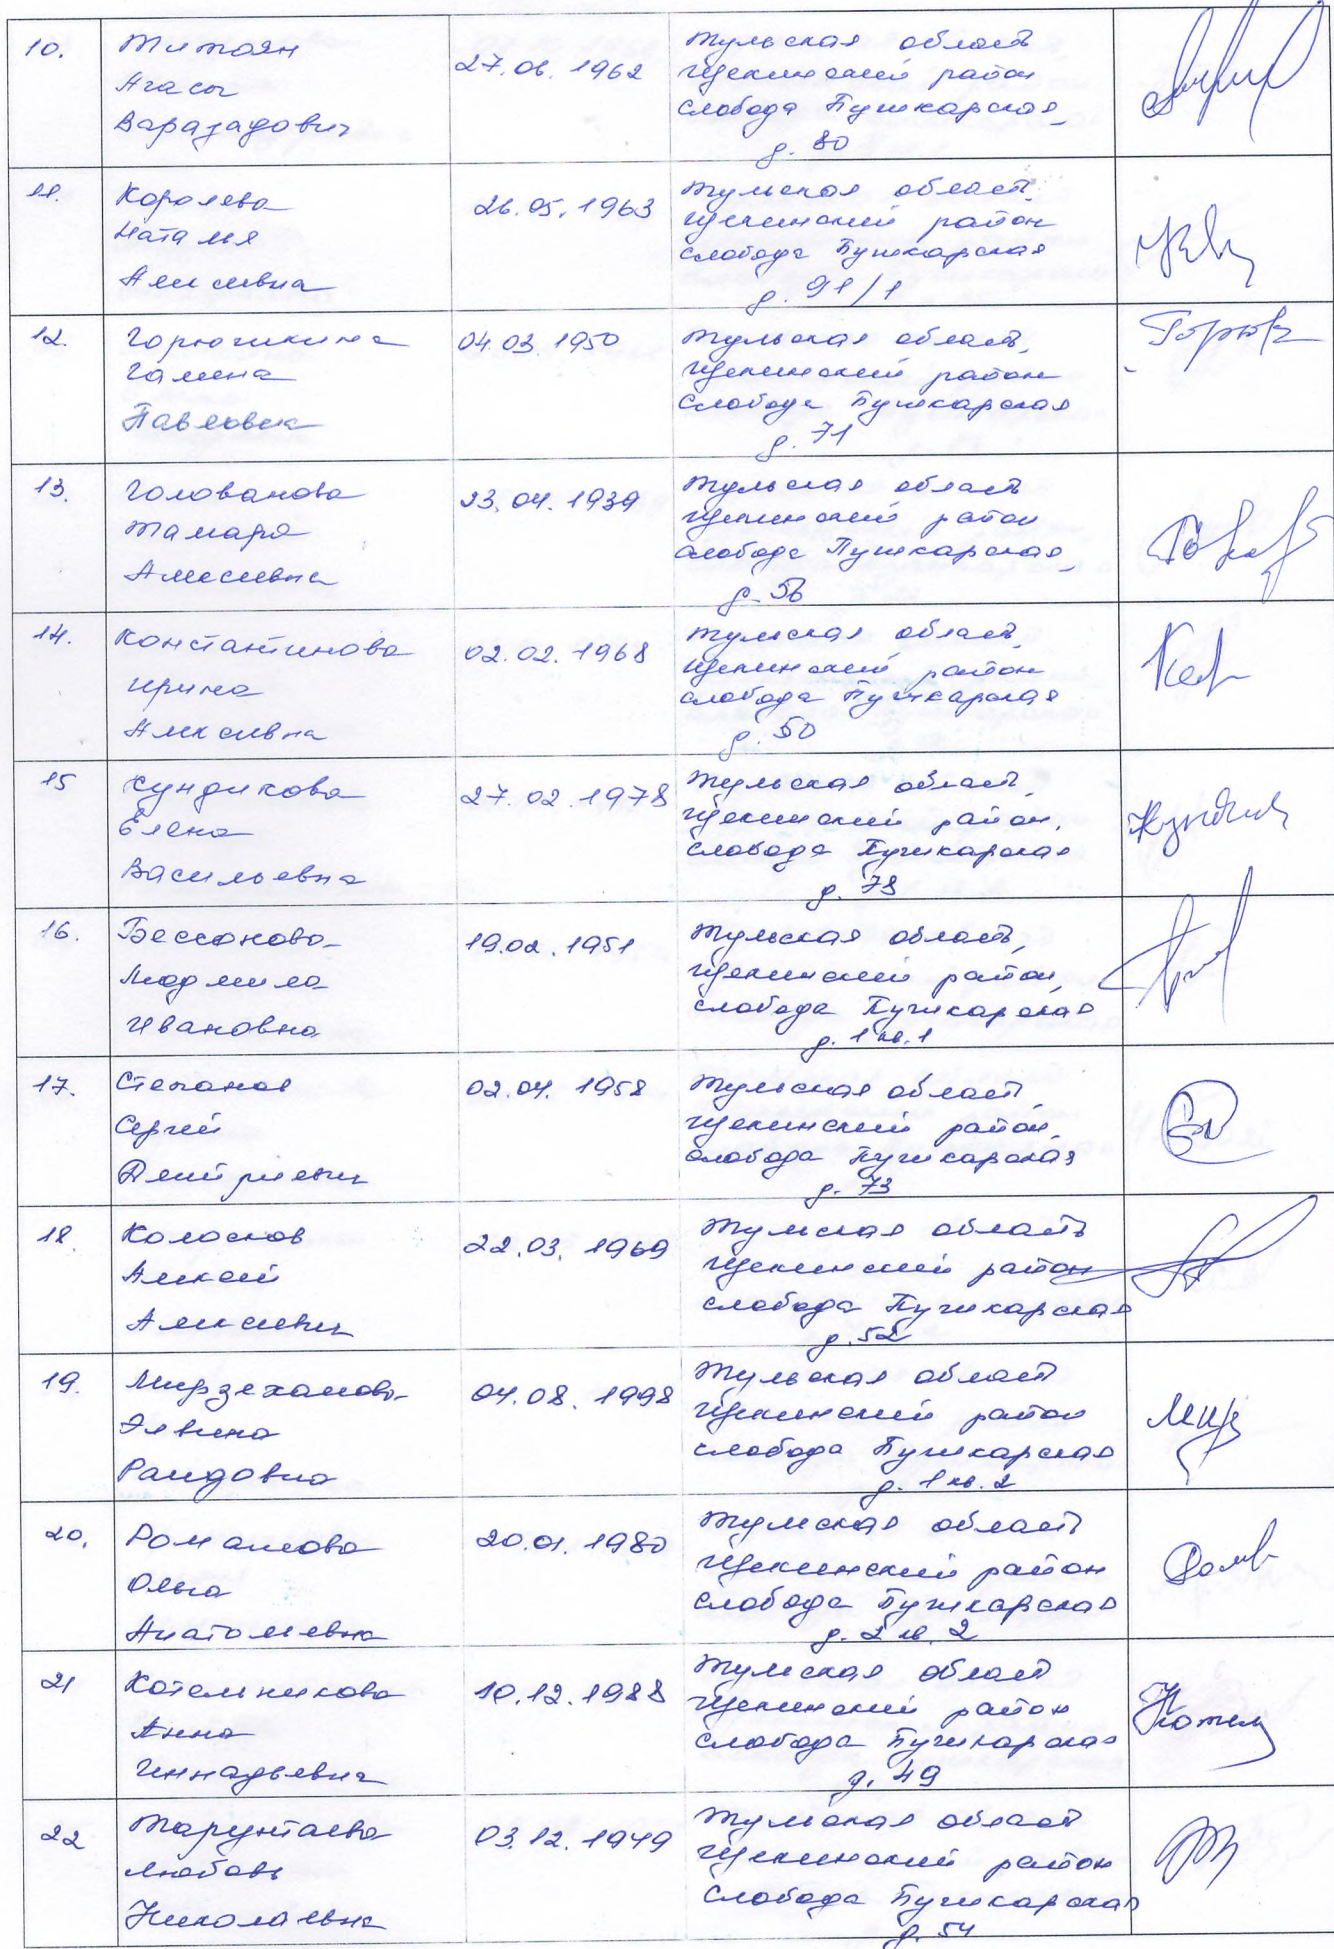 10.
Титоян
Агасы
Варазадович
27.06.1962
Тульская область
Щекинский район
слобода Пушкарская,
д. 80
11.
Королева
Наталья
Алексеевна
26.05.1963
Тульская область,
Щекинский район
слобода Пушкарская
д. 91/1
12.
Горюшкина
Галина
Павловна
04.03.1950
Тульская область,
Щекинский район
слобода Пушкарская
д. 71
13.
Голованова
Тамара
Алексеевна
23.04.1939
Тульская область
Щекинский район
слобода Пушкарская,
д. 56
14.
Константинова
Ирина
Алексеевна
02.02.1968
Тульская область,
Щекинский район
слобода Пушкарская
д. 50
15
Кундикова
Елена
Васильевна
27.02.1978
Тульская область,
Щекинский район,
слобода Пушкарская
д. 78
16.
Бессонова
Людмила
Ивановна
19.02.1951
Тульская область,
Щекинский район,
слобода Пушкарская
д. 1 кв. 1
17.
Степанов
Сергей
Дмитриевич
02.04.1958
Тульская область,
Щекинский район,
слобода Пушкарская
д. 73
18.
Колосков
Алексей
Алексеевич
22.03.1969
Тульская область
Щекинский район
слобода Пушкарская
д. 52
19.
Мирзеханова
Элвина
Раидовна
04.08.1998
Тульская область
Щекинский район
слобода Пушкарская
д. 1 кв. 2
20.
Ромашова
Ольга
Анатольевна
20.01.1980
Тульская область
Щекинский район
слобода Пушкарская
д. 2 кв. 2
21
Котельникова
Анна
Геннадьевна
10.12.1988
Тульская область
Щекинский район
слобода Пушкарская
д. 49
22
Тарунтаева
Любовь
Николаевна
03.12.1949
Тульская область
Щекинский район
слобода Пушкарская
д. 54